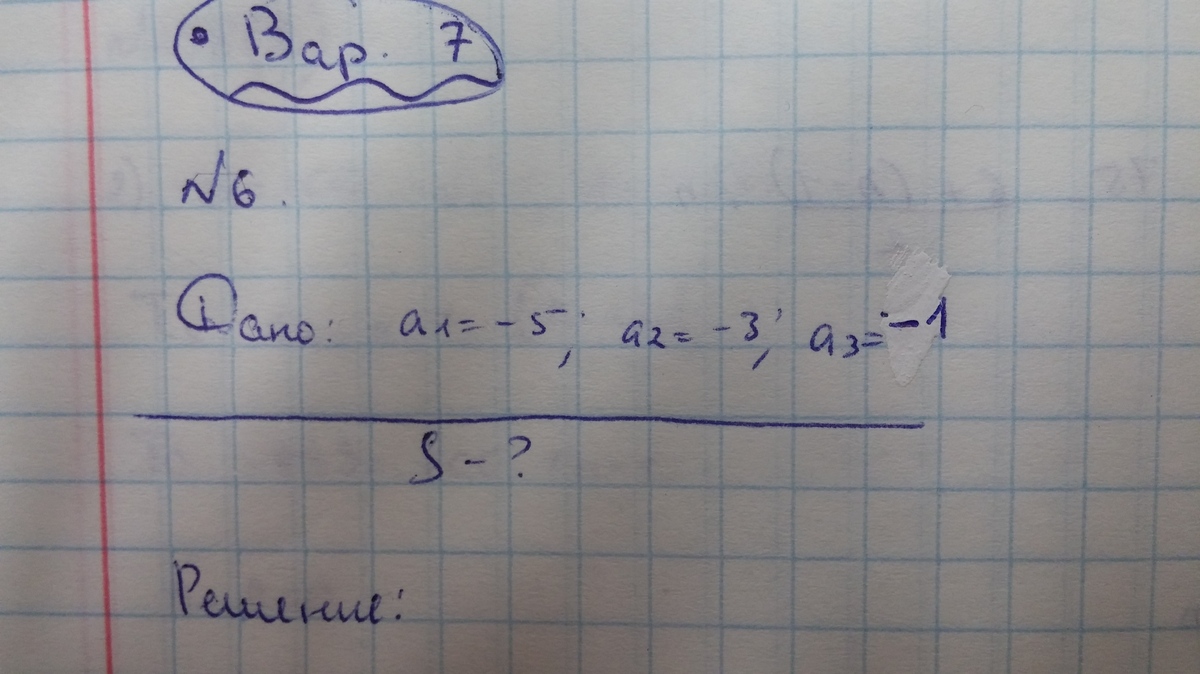 Вар. 7
N6.
Дано: a1 = -5; a2 = -3; a3 = -1
S - ?
Решение: